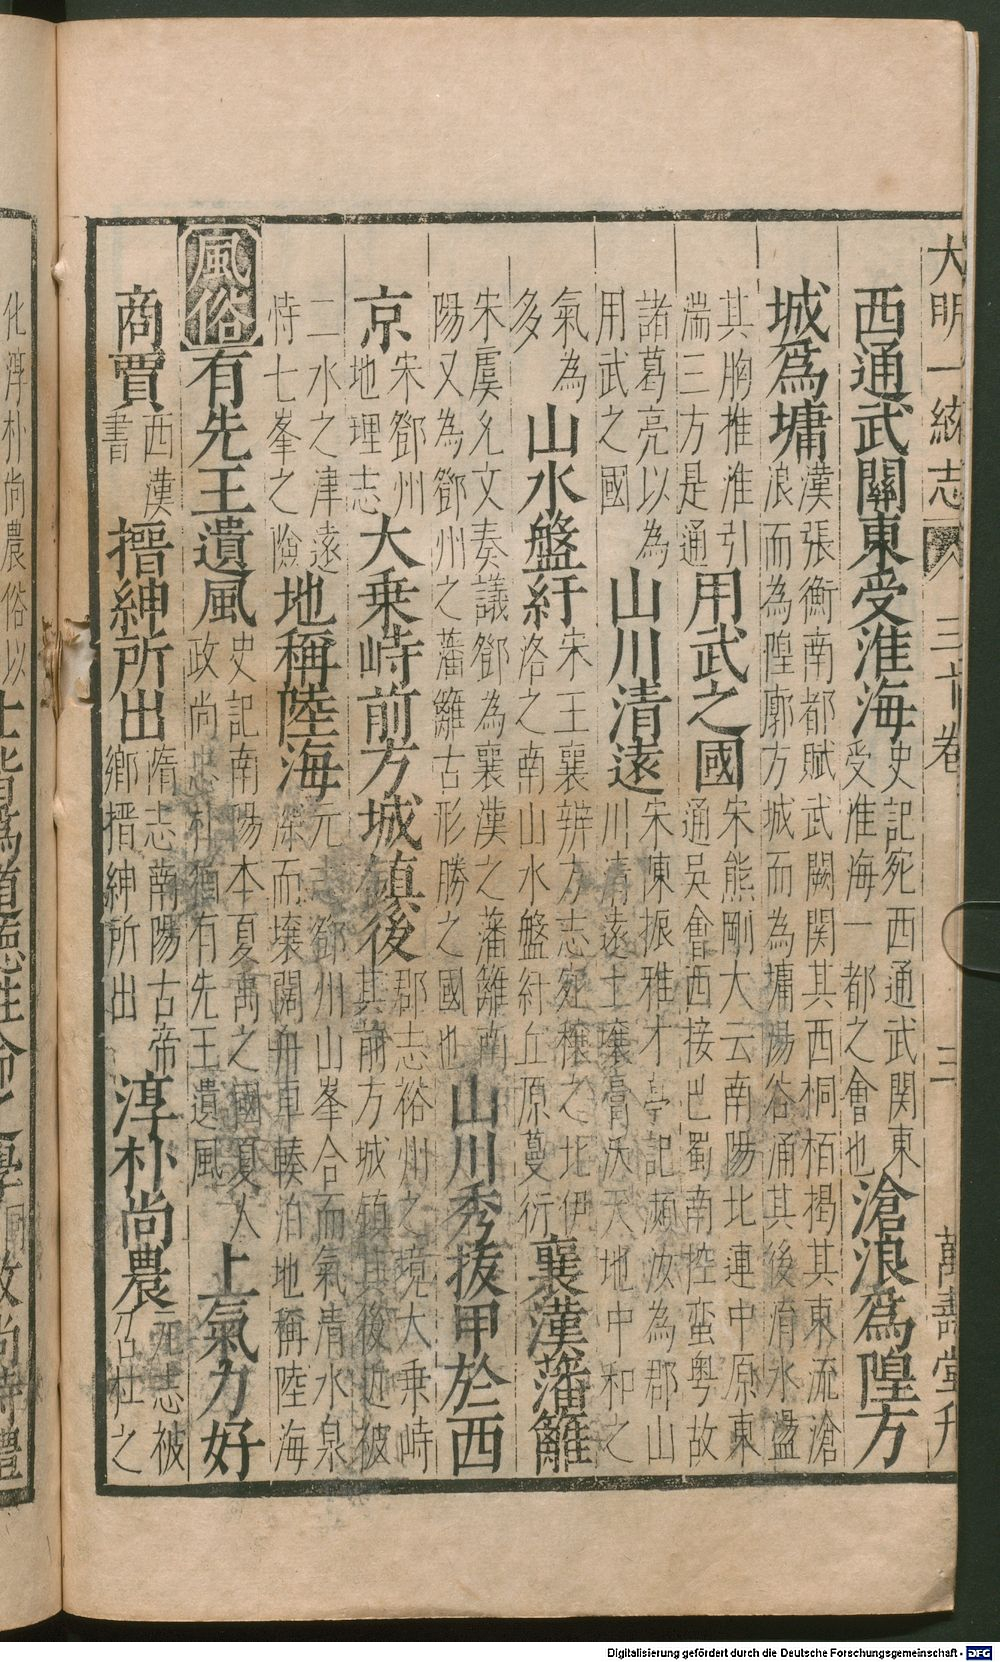 大明一統志 三十卷 三 萬壽堂刋
西通武關東受淮海
史記宛西通武関東
受淮海一都之會也
滄浪爲隍方
城爲墉
漢張衡南都賦武闕関其西桐栢揭其東流滄
浪而為隍廓方城而為墉湯谷涌其後淯水盪
其胸推淮引
湍三方是通
用武之國
宋熊剛大云南陽北連中原東
通吳會西接巴蜀南控蛮粤故
諸葛亮以為
用武之國
山川清遠
宋陳振雅才亭記頻汝為郡山
川清遠土壤膏沃天地中和之
氣為
多
山水盤紆
宋王襄辨方志宛穰之北伊
洛之南山水盤紆丘原蔓衍
襄漢藩籬
宋虞允文奏議鄧為襄漢之藩籬南
陽又為鄧州之藩籬古形勝之國也
山川秀拔甲於西
京
宋鄧州
地理志
大乗峙前方城鎮後
郡志裕州之境大乗峙
其前方城鎮其後近被
二水之津遠
恃七峯之險
地稱陸海
元志鄧州山峯合而氣清水泉
深而壤闊舟車輳泊地稱陸海
風俗
有先王遺風
史記南陽本夏禹之國夏人
政尚忠朴猶有先王遺風
上氣力好
商賈
西漢
書
搢紳所出
隋志南陽古帝
鄉搢紳所出
淳朴尚農
元志被
召杜之
化淳朴尚農俗以
士皆為道德性命之學
Digitalisierung gefördert durch die Deutsche Forschungsgemeinschaft - DFG